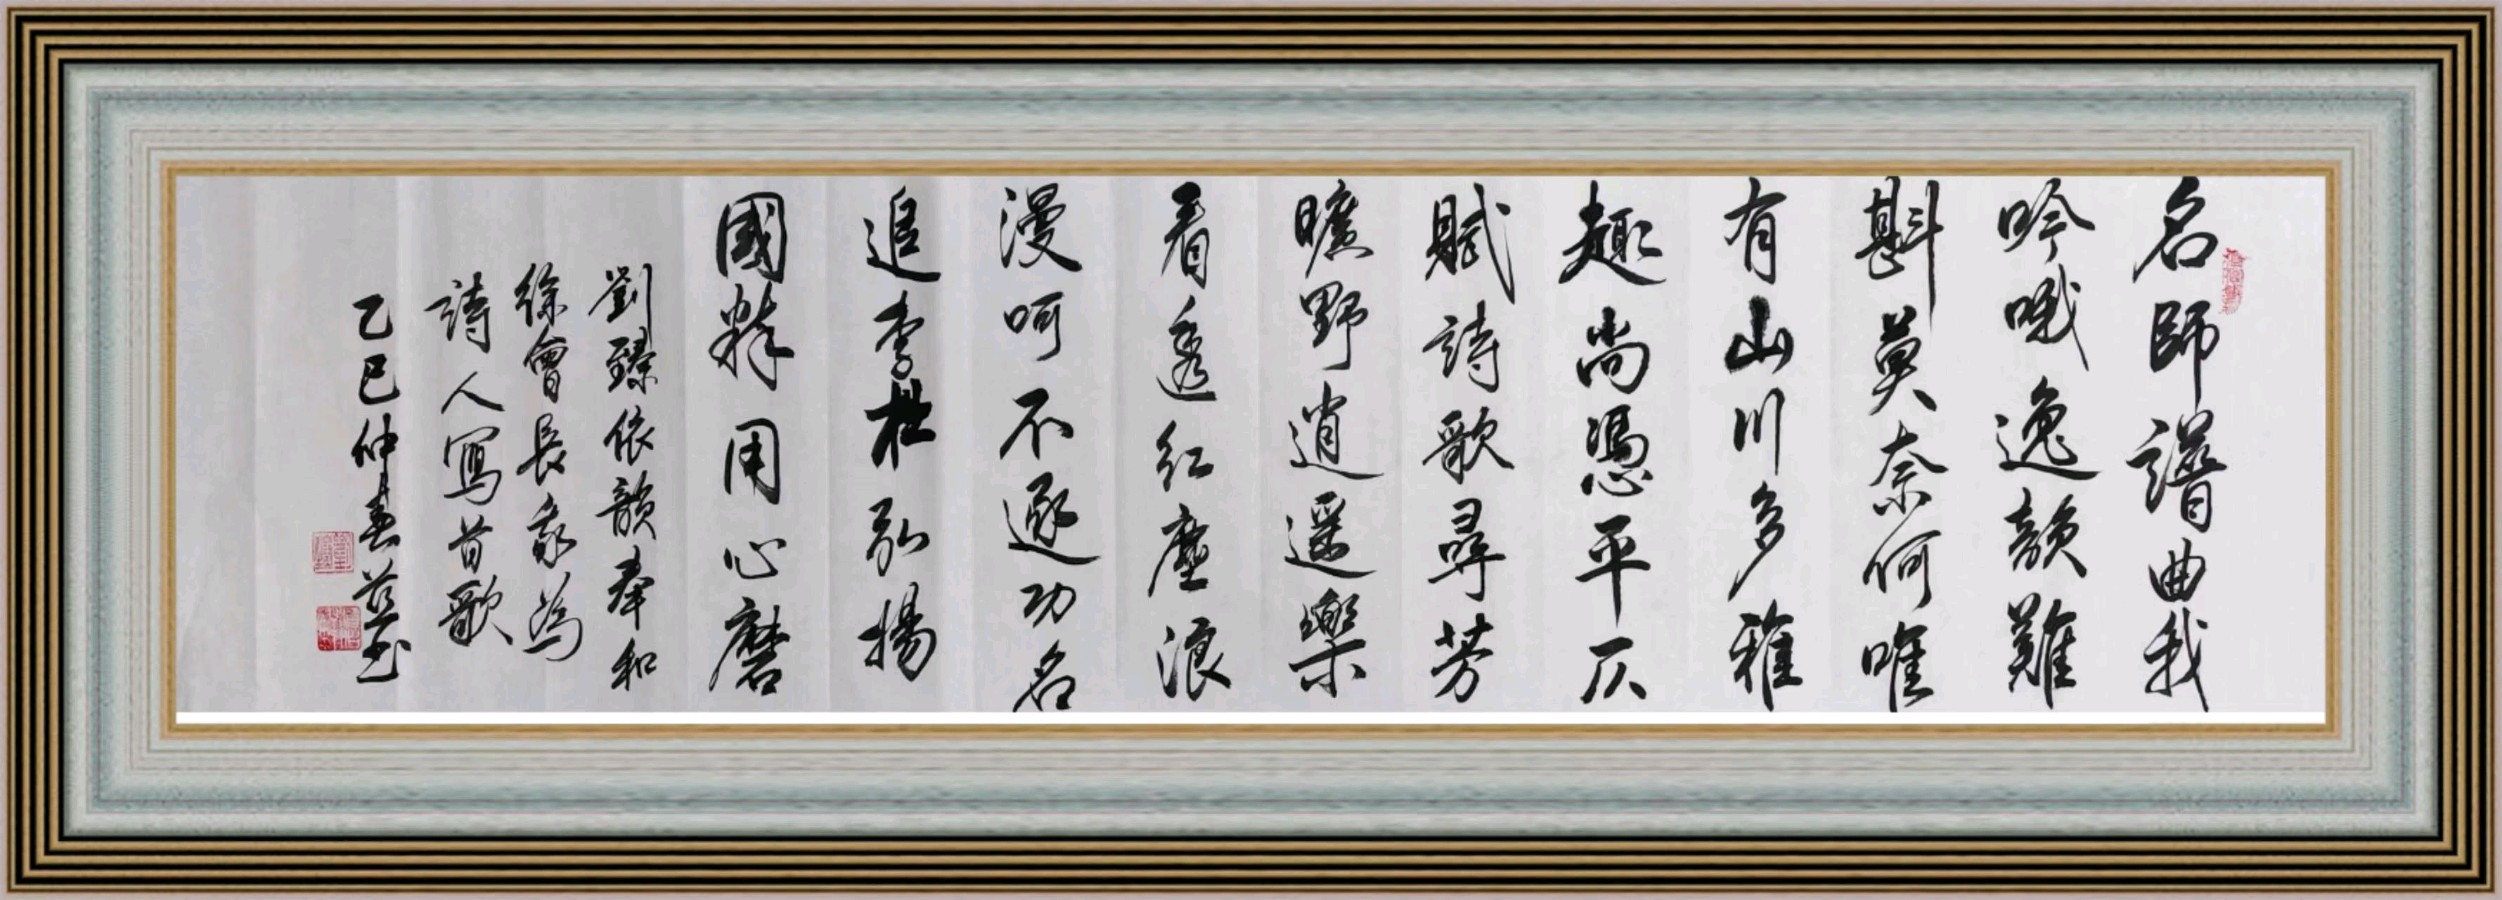 名師譜曲我
吟哦逸韻難
斟莫奈何唯
有山川多雅
趣尚憑平仄
賦詩歌尋芳
曠野逍遥樂
看透紅塵浪
漫呵不逐功名
追李杜弘揚
國粹用心磨
劉臻依韻奉和
徐會長我為
詩人寫首歌
乙巳仲春益書